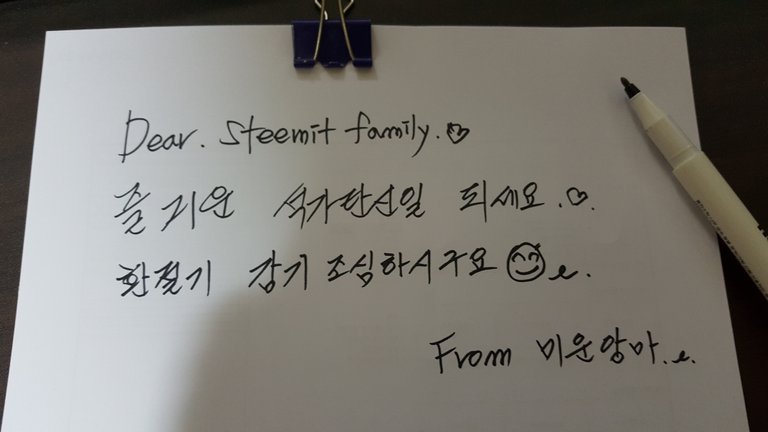 Dear. Steemit family.♡
즐거운 석가탄신일 되세요.♡.
환절기 감기 조심하시구요 😊e.
From 미운앙마.e.